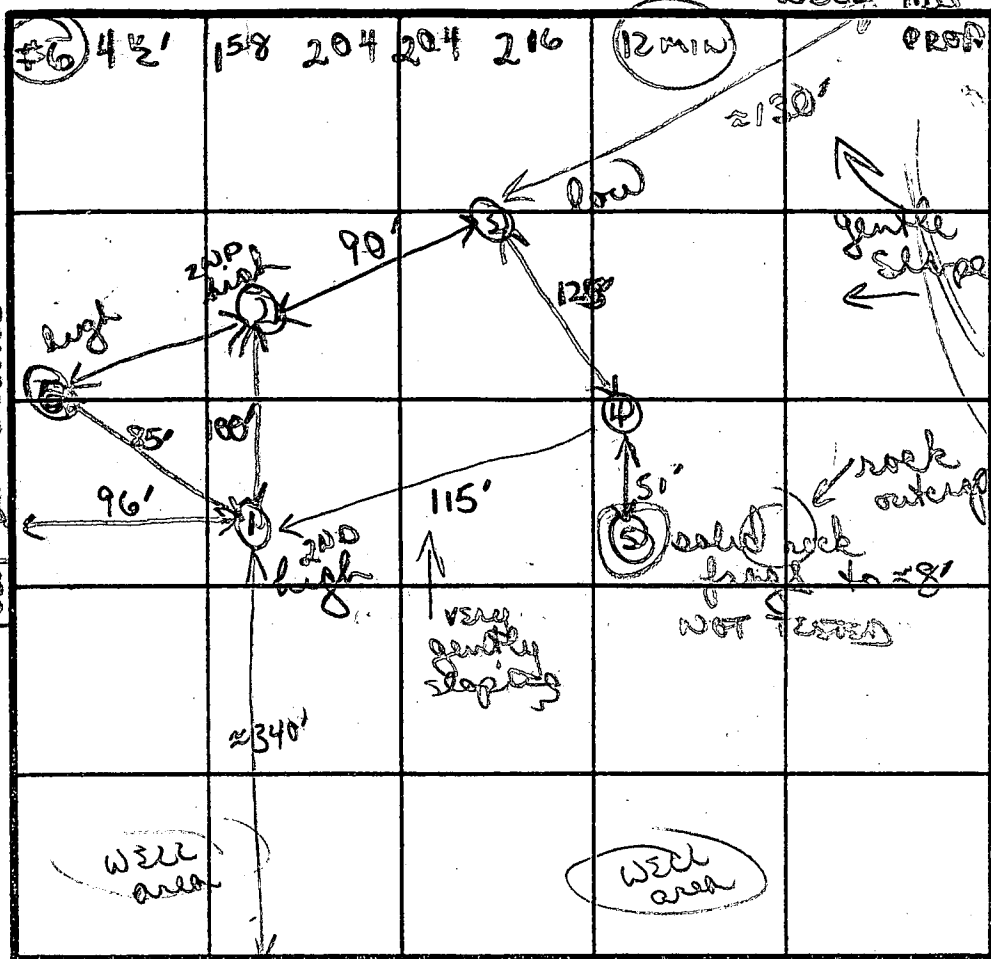 #6 4½' 158 204 204 216 12 MIN PROP
≈130'
low
3
90'
gentle slope
2ND high
128'
high
6
4
85'
100'
rock outcrop
96'
115'
51'
1
2ND high
5
solid rock
to ≈8'
NOT TESTED
very gently sloping
≈340'
WELL area
WELL area